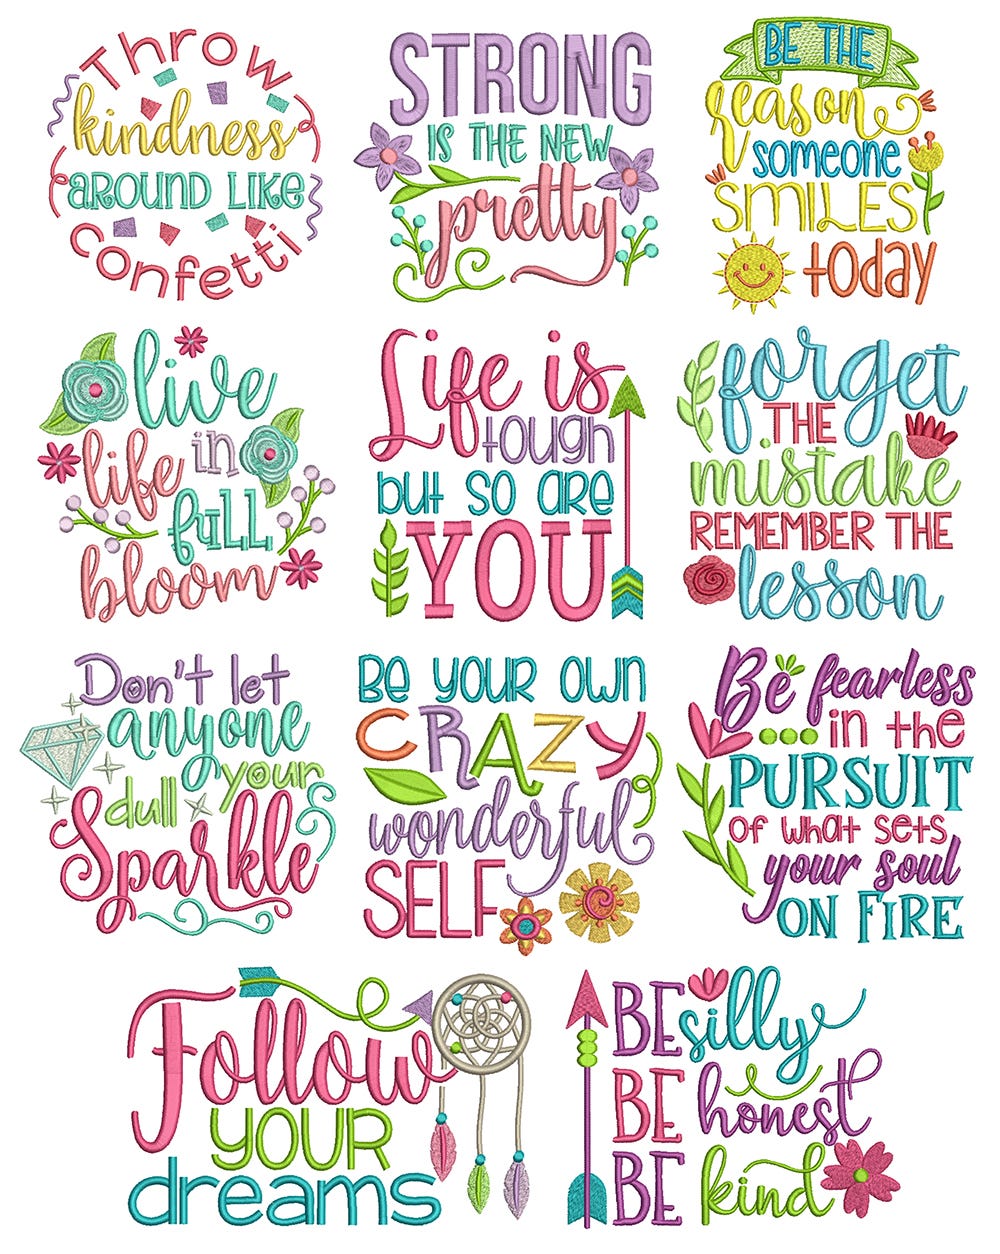 Throw
kindness
AROUND LIKE
confetti
STRONG
IS THE NEW
pretty
BE THE
reason
someone
SMILES
today
live
life in
full
bloom
Life is
tough
but so are
YOU
forget
THE
mistake
REMEMBER THE
lesson
Don't let
anyone
dull your
Sparkle
Be your own
CRAZY
wonderful
SELF
Be fearless
in the
PURSUIT
of what sets
your soul
ON FIRE
Follow
YOUR
dreams
BE silly
BE honest
BE kind